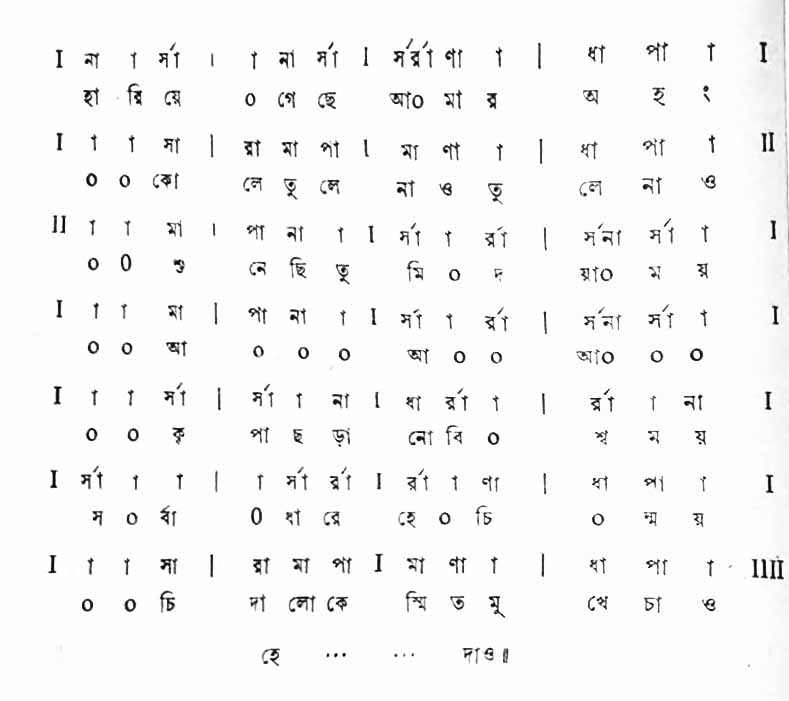 I না া র্সা । া না র্সা I র্সর্রা ণা া | ধা পা া I
হা রি য়ে ০ গে ছে আ০ মা র অ হ ং
I া া সা | রা মা পা I মা ণা া | ধা পা া II
০ ০ কো লে তু লে না ও তু লে না ও
II া া মা । পা না া I র্সা া র্রা | র্সনা র্সা া I
০ ০ শু নে ছি তু মি ০ দ য়া০ ম য়
I া া মা | পা না া I র্সা া র্রা | র্সনা র্সা া I
০ ০ আ ০ ০ ০ আ ০ ০ আ০ ০ ০
I া া র্সা | র্সা া না I ধা র্রা া | র্রা া না I
০ ০ কৃ পা ছ ড়া নো বি ০ শ্ব ম য়
I র্সা া া | া র্সা র্রা I র্রা া ণা | ধা পা া I
স ০ র্বা ০ ধা রে হে ০ চি ০ ন্ম য়
I া া সা | রা মা পা I মা ণা া | ধা পা া IIII
০ ০ চি দা লো কে স্মি ত মু খে চা ও
হে ... ... দাও॥